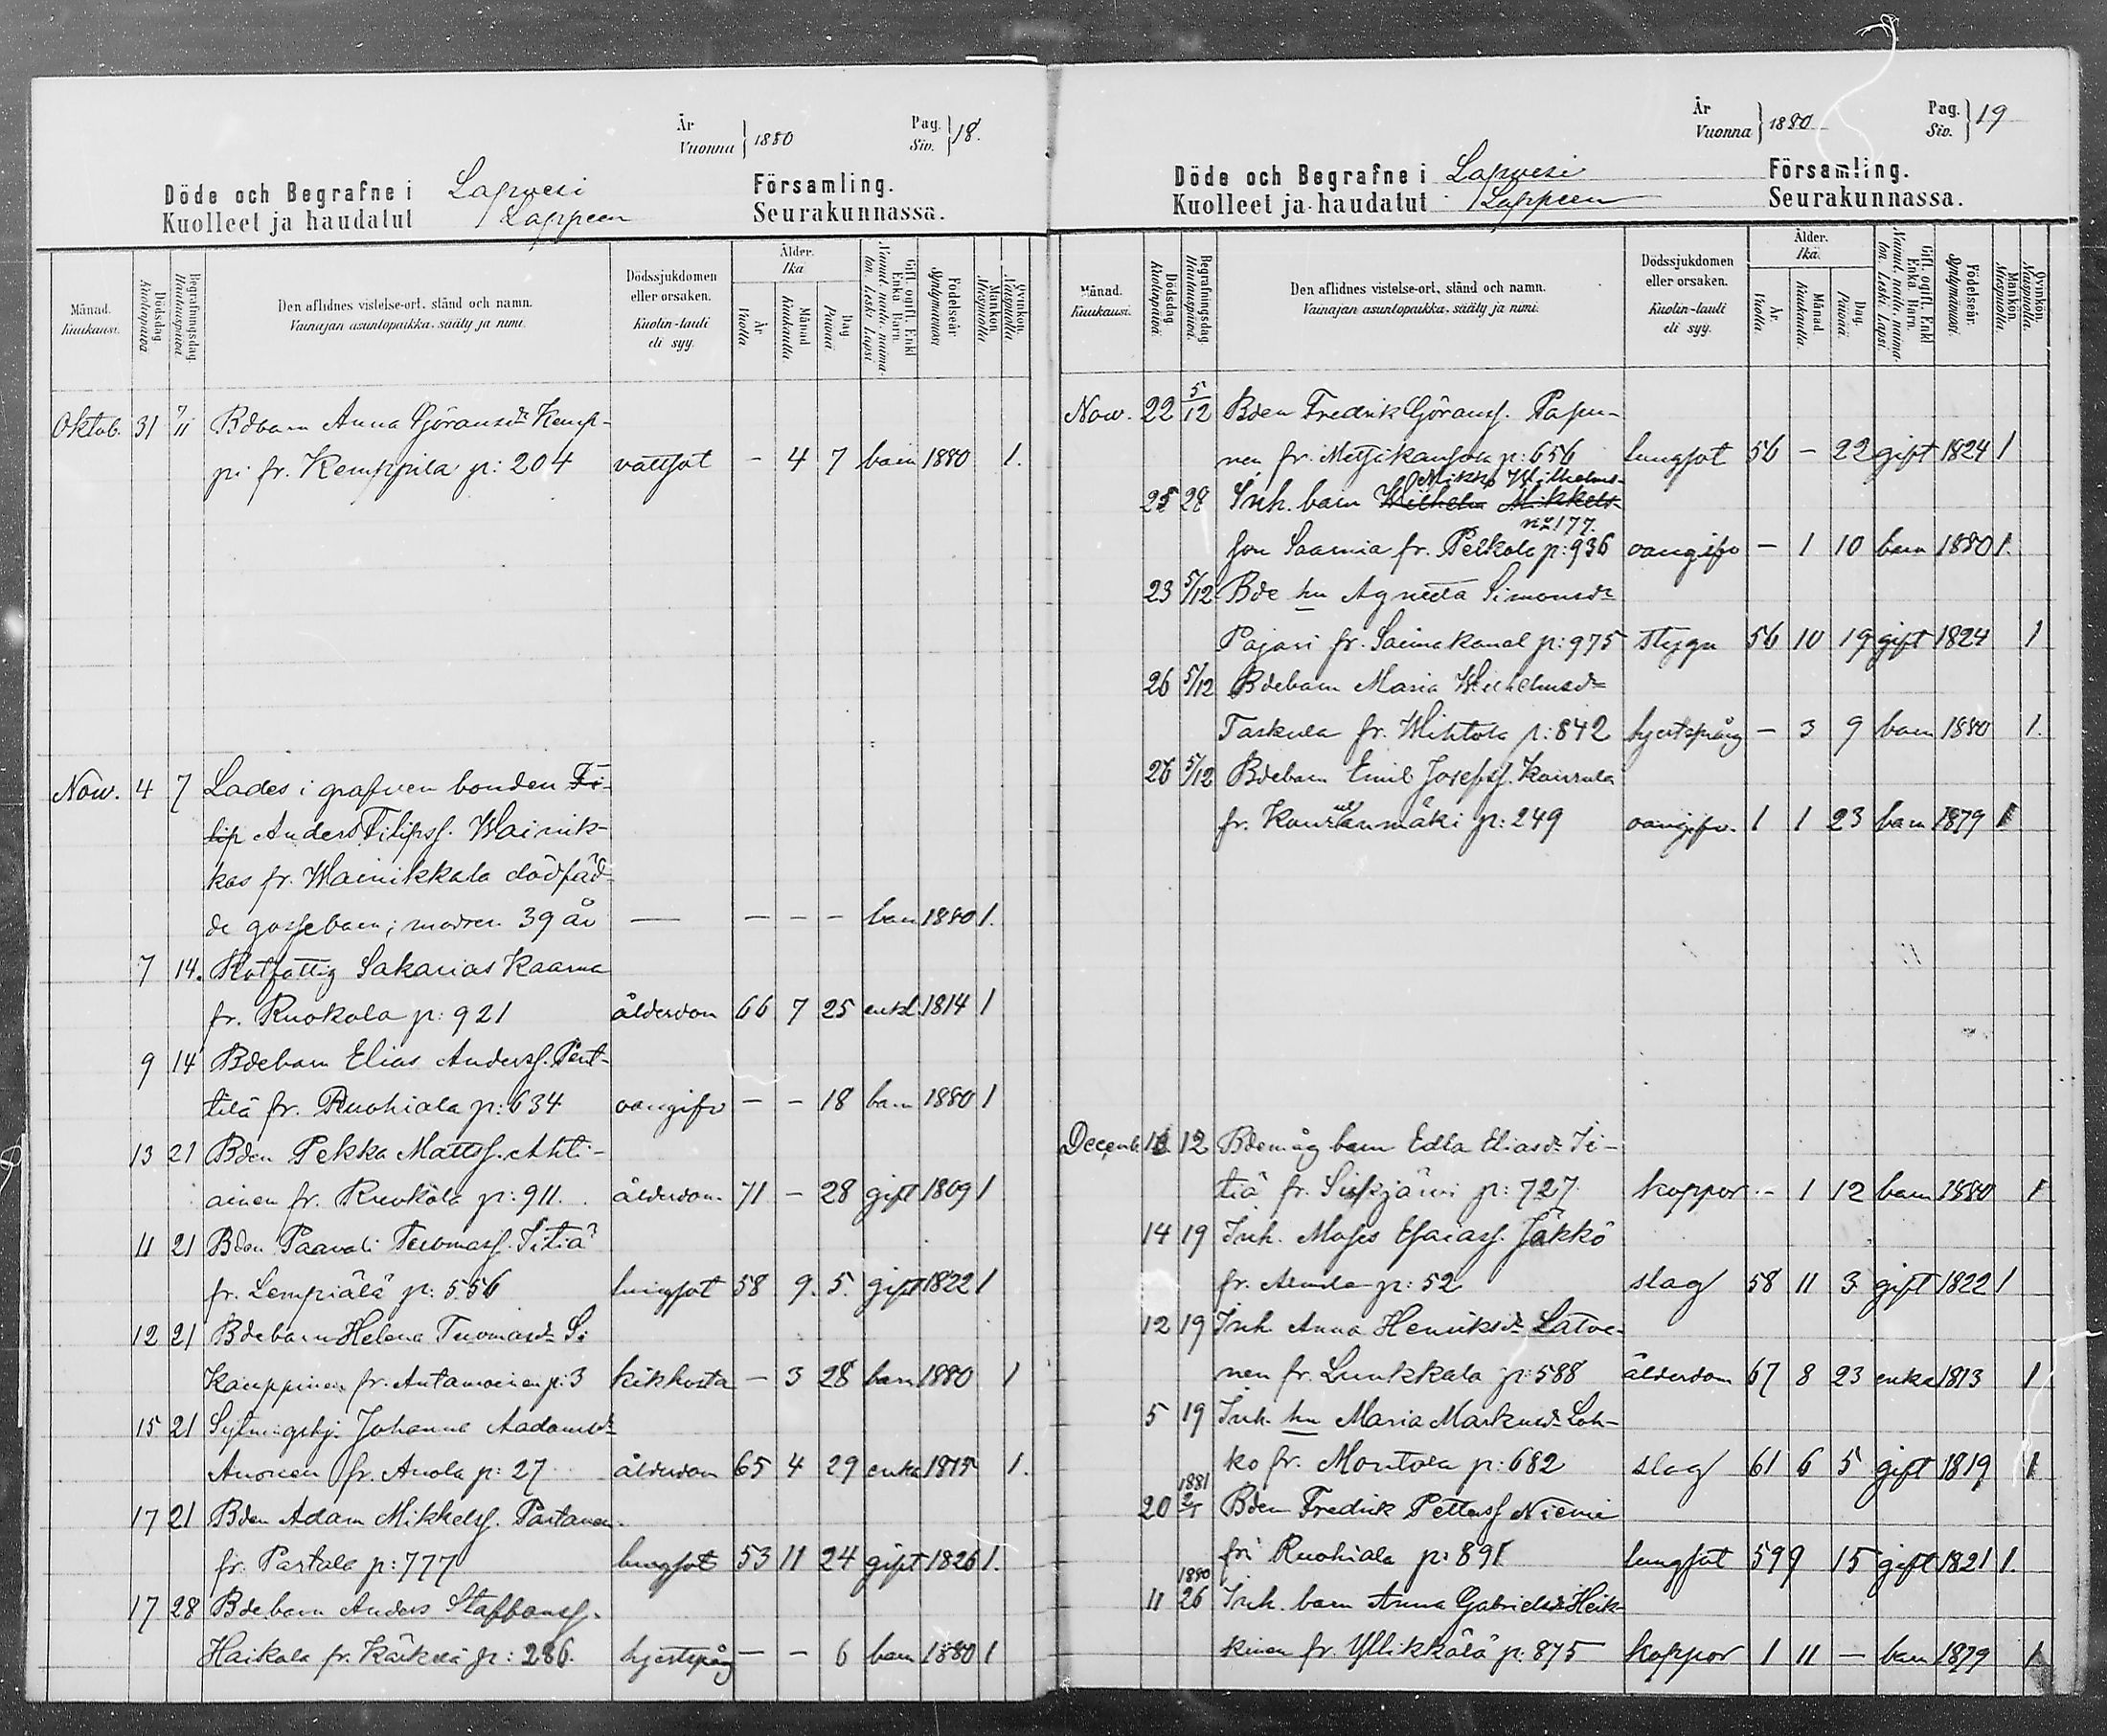 År
Vuonna } 1880
Pag.
Siv. } 18.
Döde och Begrafne i Lapvesi Församling.
Kuolleet ja haudatut Lappeen Seurakunnassa.
Månad. Kuukausi.
Dödsdag. Kuolinpäivä
Begrafningsdag. Hautauspäivä.
Den aflidnes vistelse-ort, stånd och namn.
Vainajan asuntopaikka, sääty ja nimi.
Dödssjukdomen eller orsaken.
Kuolin-tauti eli syy.
Ålder. Ikä
År Vuotta
Månad Kuukautta.
Dag Päivää.
Gift, ogift. Enkl. Enka. Barn.
Nainut, naitu, naimaton. Leski. Lapsi.
Födelseår. Syntymävuosi
Mankön. Miespuolia.
Qvinkön. Vaimopuolia.
Oktob. 31 7/11 Bdbarn Anna Göransdr Kemp-
pi fr. Kemppila p: 204 vattsot – 4 7 barn 1880 1.
Now. 4 7 Lades i grafven bonden Fi-
lip Anders Filipss. Wainik-
kas fr. Wainikkala dödföd-
de gossebarn; modren 39 år — – – – barn 1880 1.
7 14. Rotfattig Sakarias Kaarna
fr. Ruokola p: 921 ålderdom 66 7 25 enkl. 1814 1
9 14 Bdebarn Elias Anderss. Pent-
tilä fr. Ruohiala p: 634 oangifv – – 18 barn 1880 1
13 21 Bden Pekka Mattss. Ahti-
ainen fr. Ruokola p: 911. ålderdom 71 – 28 gift 1809 1
11 21 Bden Paavali Tuomass. Titiä
fr. Lempiälä p: 556 lungsot 58 9. 5. gift 1822 1
12 21 Bdebarn Helena Tuomasdr Si
Kauppinen fr. Antamoinen p: 3 kikhosta – 3 28 barn 1880 1
15 21 Sytningshj. Johanna Aadamsdr
Anonen fr. Anola p: 27 ålderdom 65 4 29 enka 1815 1.
17 21 Bden Adam Mikkelss. Partanen
fr. Partala p: 777 lungsot 53 11 24 gift 1826 1.
17 28 Bdebarn Anders Staffanss.
Haikala fr. Kärkeä p: 286. hjertspång – – 6 barn 1880 1
År
Vuonna } 1880
Pag.
Siv. } 19
Döde och Begrafne i Lapvesi Församling.
Kuolleet ja haudatut Lappeen Seurakunnassa.
Månad. Kuukausi.
Dödsdag. Kuolinpäivä.
Begrafningsdag. Hautauspäivä.
Den aflidnes vistelse-ort, stånd och namn.
Vainajan asuntopaikka, sääty ja nimi.
Dödssjukdomen eller orsaken.
Kuolin-tauti eli syy.
Ålder. Ikä.
År. Vuotta.
Månad. Kuukautta.
Dag. Päivää.
Gift, ogift. Enkl. Enka. Barn.
Nainut, naitu, naimaton. Leski. Lapsi.
Födelseår. Syntymävuosi.
Mankön. Miespuolia.
Qvinkön. Vaimopuolia.
Now. 22 5/12 Bden Fredrik Göranss. Papu-
nen fr. p: 656 lungsot 56 – 22 gift 1824 1
Mikko Wilhelms-
25 28 Inh. barn Wilhelm Mikkels-
nr 177.
son Saamia fr. Pelkola p: 936 oangifv – 1 10 barn 1880 1.
23 5/12 Bde hu Agneta Simonsdr
Pajari fr. Saimakanal p: 975 stygn 56 10 19 gift 1824 1
26 5/12 Bdebarn Maria Wilhelmsdr
Taskula fr. Wihtola p: 842 hjertspång – 3 9 barn 1880 1.
26 5/12 Bdebarn Emil Josefss. Kaurula
fr. p: 249 oangifv. 1 1 23 barn 1879 1
Decemb. 12 Bdemåg barn Edla Eliasdr Ti-
tiä fr. p: 727 koppor – 1 12 barn 1880 1
14 19 Inh. Moses Esaiass. Jäkkö
fr. p: 52 slag 58 11 3 gift 1822 1
12 19 Inh. Anna Henriksdr Latva-
nen fr. Luukkala p: 588 ålderdom 67 8 23 enka 1813 1
5 19 Inh. hu Maria Markusdr Loh-
ko fr. Montola p: 682 slag 61 6 5 gift 1819 1
1881
20 2/1 Bden Fredrik Petterss Niemi
fr. Ruohiala p: 891 lungsot 59 9 15 gift 1821 1.
1880
11 26 Inh. barn Anna Gabrielsdr Heik-
kinen fr. Yllikkälä p: 875 koppor 1 11 – barn 1879 1